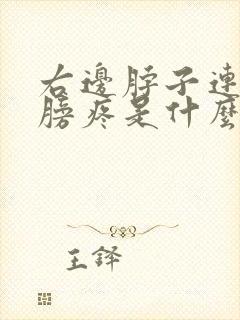 右邊脖子連
膀疼是什麼
王鐸